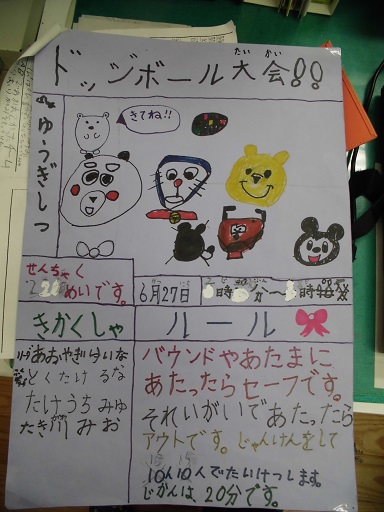 ドッジボール大会!!
たいかい
ゆうぎしつ
きてね!!
せんちゃく
20めいです。
6月27日
きかくしゃ
ルール
あおやぎゆいな
とくたけるな
たけうちみゆ
たき川みお
バウンドやあたまに
あたったらセーフです。
それいがいであたったら
アウトです。じゃんけんをして
10人10人でたいけつします。
じかんは20分です。